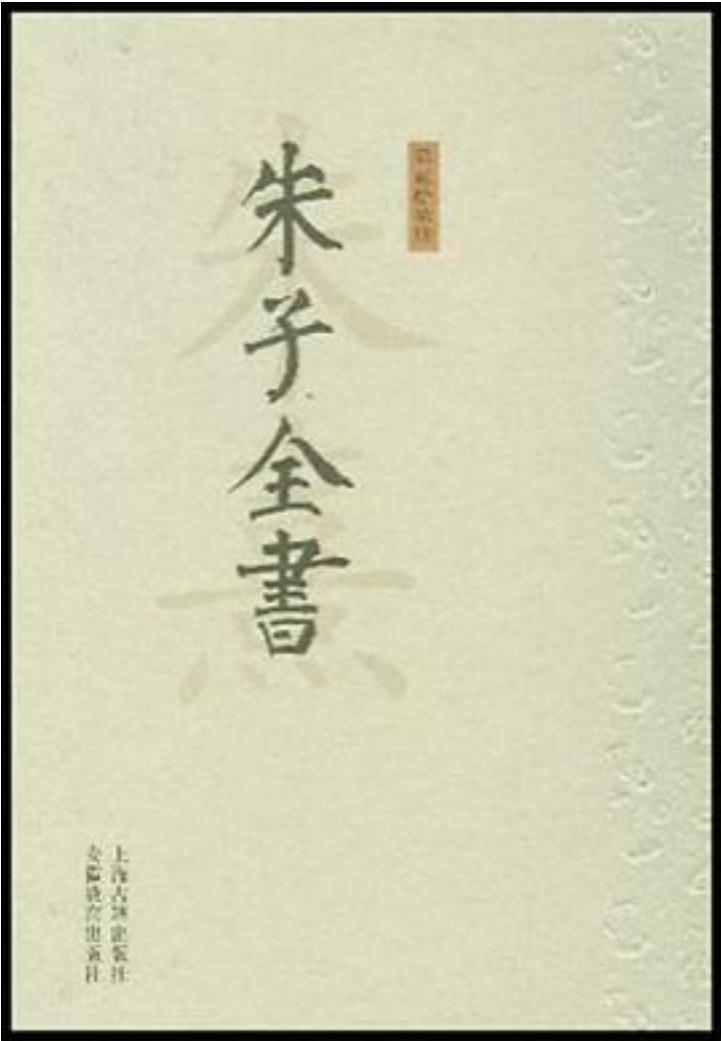 朱子全書
上海古籍出版社
安徽教育出版社